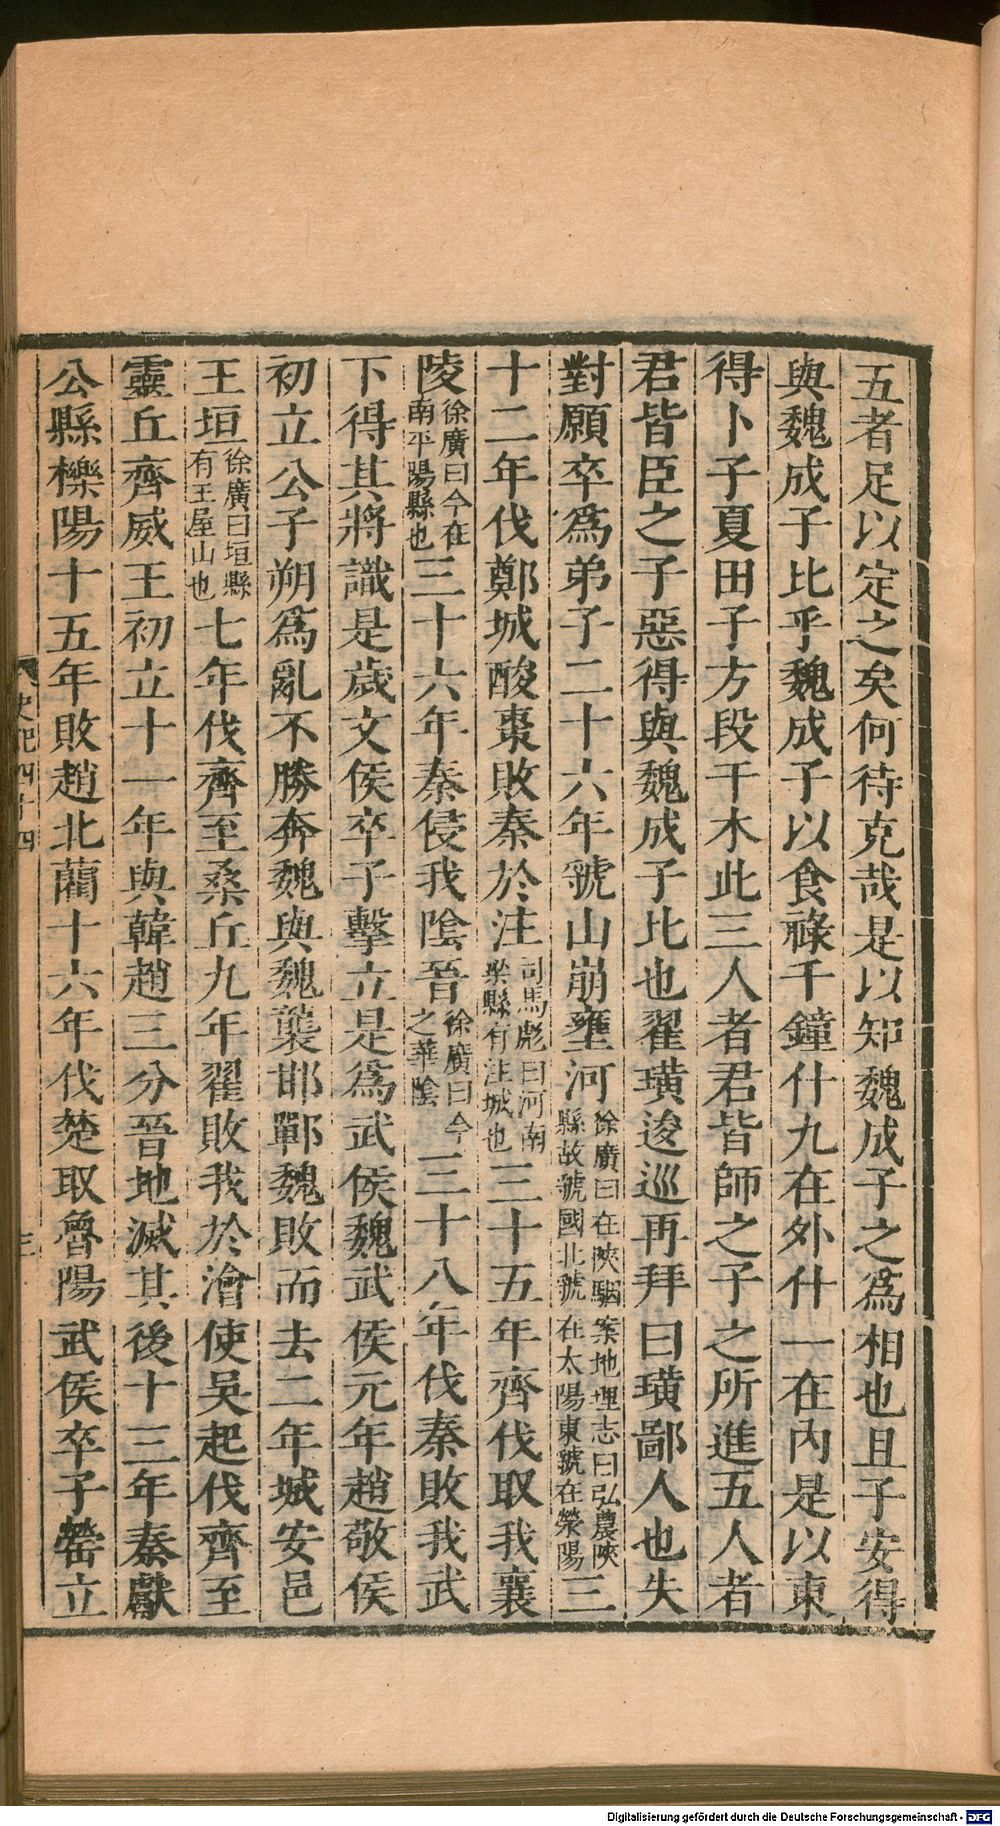 五者足以定之矣何待克哉是以知魏成子之爲相也且子安得
與魏成子比乎魏成子以食祿千鐘什九在外什一在內是以東
得卜子夏田子方段干木此三人者君皆師之子之所進五人者
君皆臣之子惡得與魏成子比也翟璜逡巡再拜曰璜鄙人也失
對願卒爲弟子二十六年虢山崩壅河徐廣曰在陝駰案地理志曰弘農陝縣故虢國北虢在太陽東虢在滎陽三
十二年伐鄭城酸棗敗秦於注司馬彪曰河南梁縣有注城也三十五年齊伐取我襄
陵徐廣曰今在南平陽縣也三十六年秦侵我陰晉徐廣曰今之華陰三十八年伐秦敗我武
下得其將識是歲文侯卒子擊立是爲武侯魏武侯元年趙敬侯
初立公子朔爲亂不勝奔魏與魏襲邯鄲魏敗而去二年城安邑
王垣徐廣曰垣縣有王屋山也七年伐齊至桑丘九年翟敗我於澮使吳起伐齊至
靈丘齊威王初立十一年與韓趙三分晉地滅其後十三年秦獻
公縣櫟陽十五年敗趙北藺十六年伐楚取魯陽武侯卒子罃立
史記四十四
三
Digitalisierung gefördert durch die Deutsche Forschungsgemeinschaft - DFG